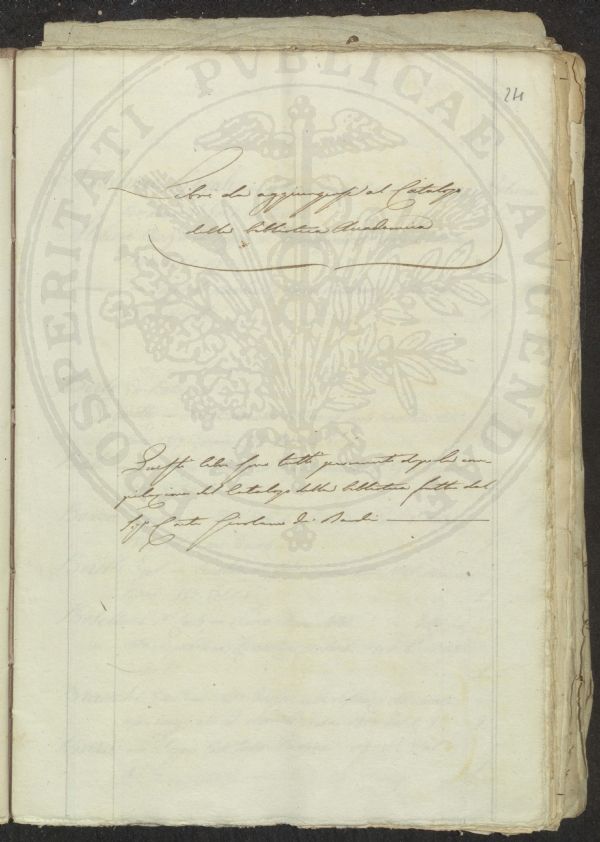 24
PROSPERITATI PVBLICAE AVGENDAE
Libri da aggiungersi al Catalogo
della biblioteca Accademica
Questi libri sono tutti pervenuti dopo la com-
pilazione del Catalogo della biblioteca fatta dal
Sig. Conte Girolamo de' Bardi